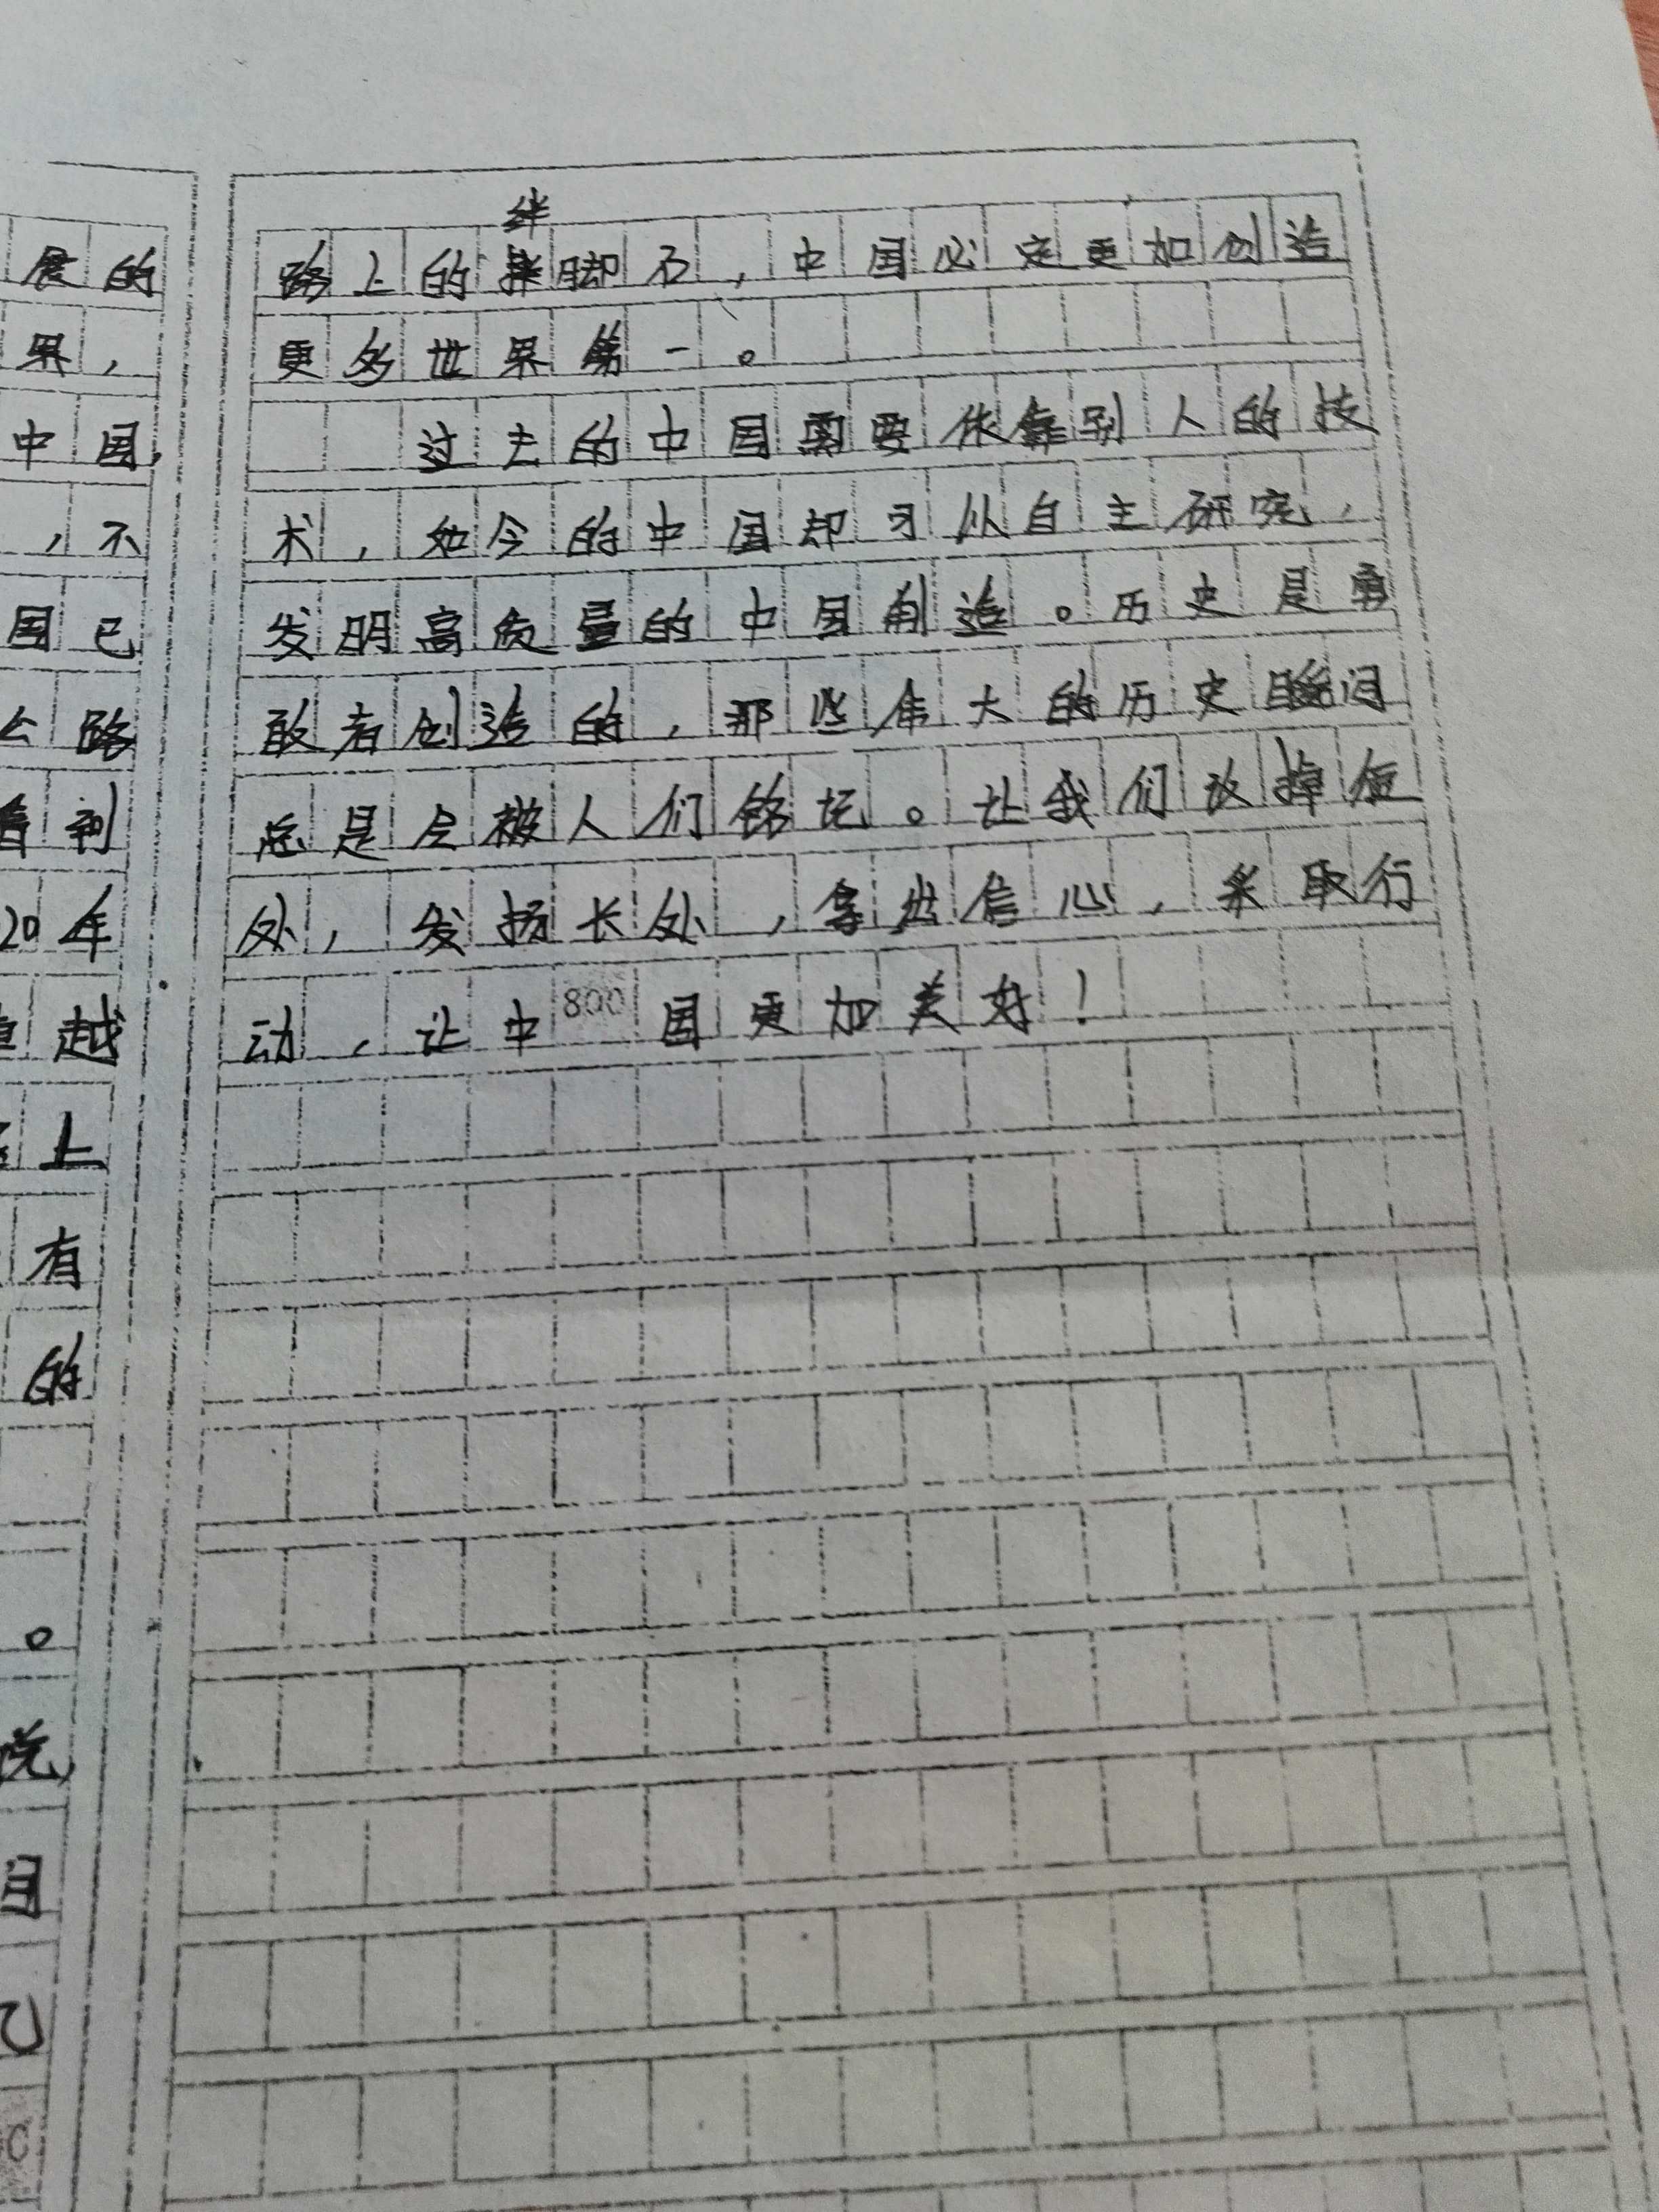 展的
界，
中国，
，不
国已
公路
看到
20年
越
上
有
的
。
说，
目
己
绊
路上的脚石，中国必定更加创造
更多世界第一。
过去的中国需要依靠别人的技
术，如今的中国却可以自主研究，
发明高质量的中国制造。历史是勇
敢者创造的，那些伟大的历史瞬间
总是会被人们铭记。让我们改掉短
处，发扬长处，拿出信心，采取行
动，让中800国更加美好！